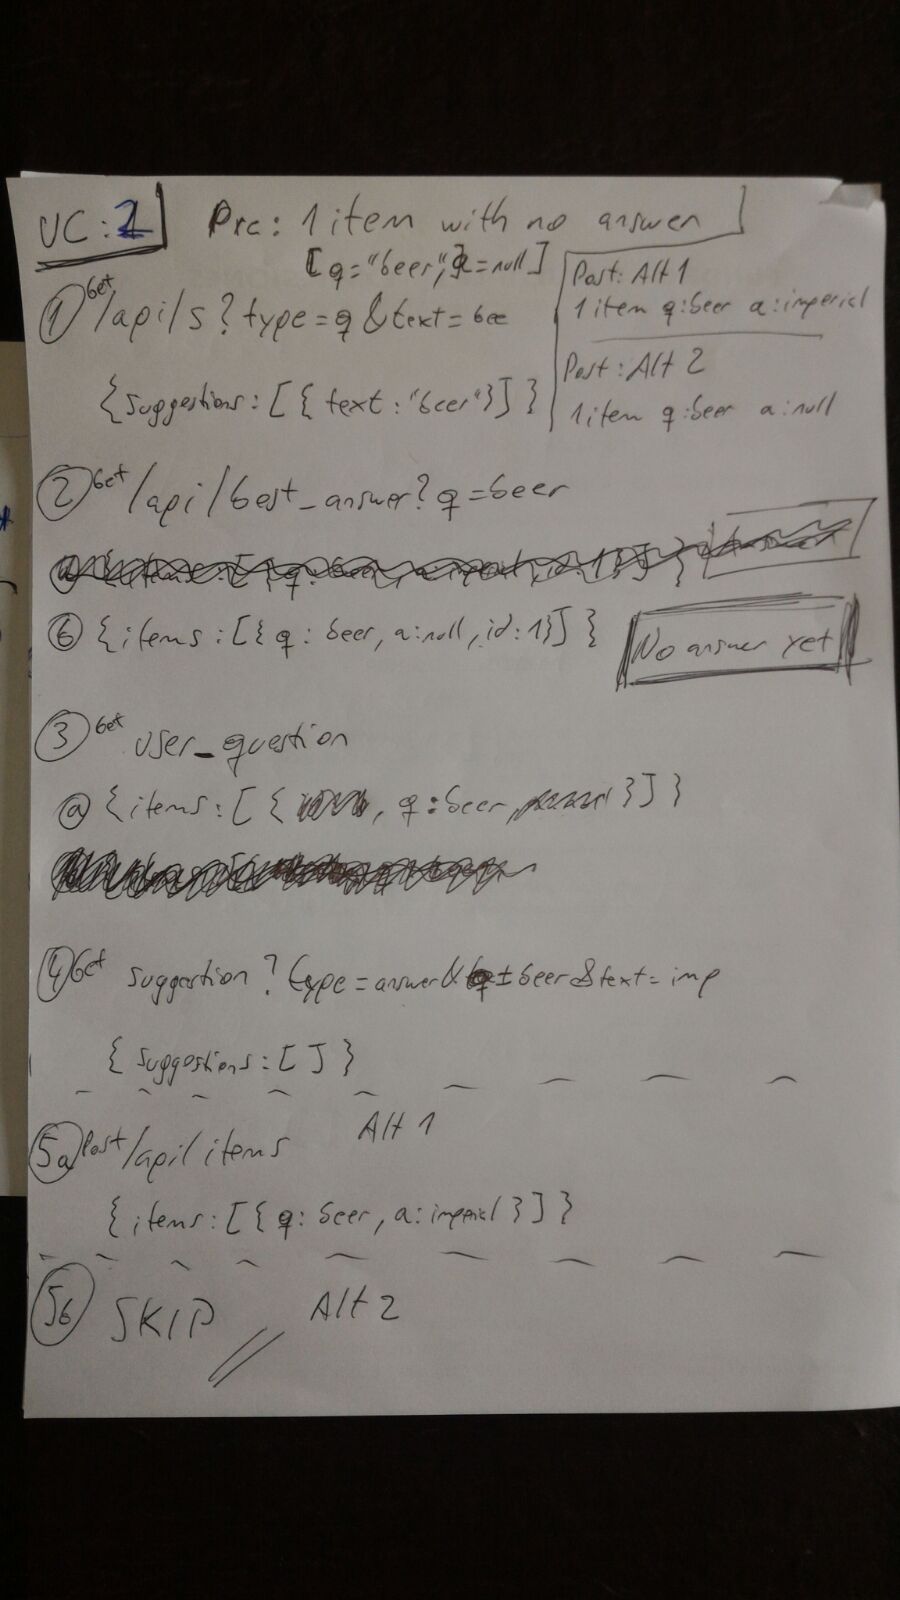 UC: 2
Pre: 1 item with no answer
[q="beer", a=null]
Post: Alt 1
1 item q:beer a:imperial
Post: Alt 2
1 item q:beer a:null
1 Get /api/s?type=q&text=bee
{suggestions:[{text:"beer"}]}
2 Get /api/best_answer?q=beer
b {items:[{q:beer, a:null, id:1}]}
No answer yet
3 Get user_question
a {items:[{ , q:beer, }]}
4 Get suggestion?type=answer&q=beer&text=imp
{suggestions:[]}
Alt 1
5a Post /api/items
{items:[{q:beer, a:imperial}]}
5b SKIP Alt 2